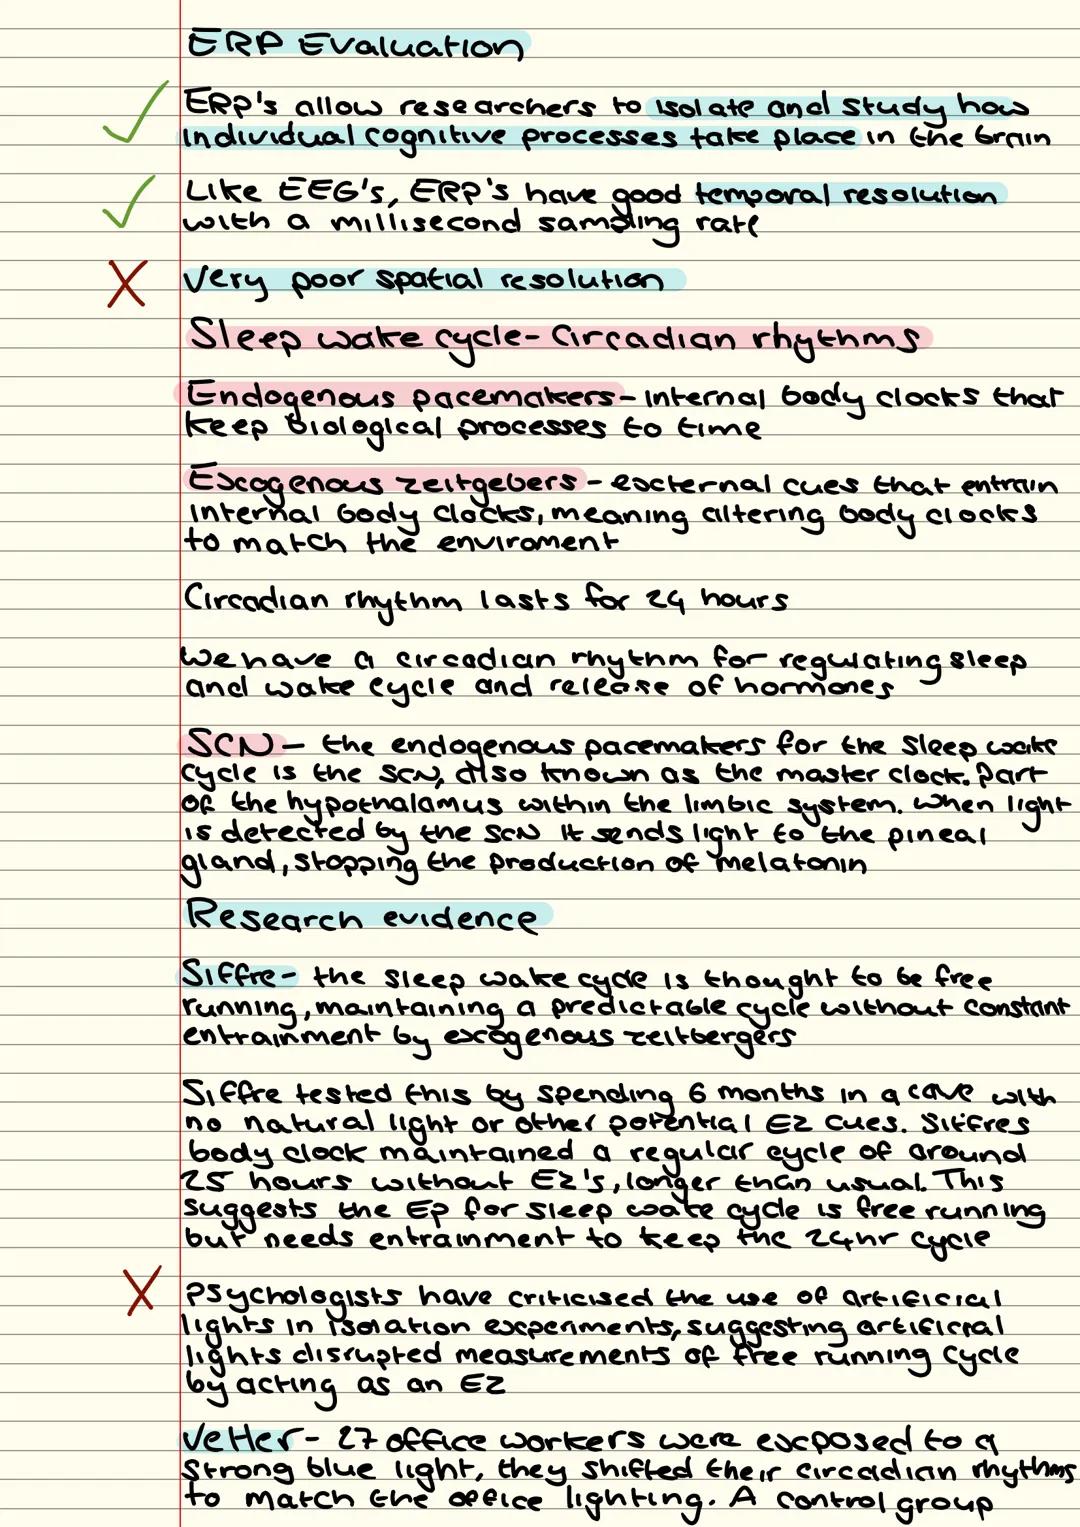 ERP Evaluation
ERP's allow researchers to isolate and study how
individual cognitive processes take place in the brain
Like EEG's, ERP's have good temporal resolution
with a millisecond sampling rate
Very poor spatial resolution
Sleep wake cycle- Circadian rhythms
Endogenous pacemakers- internal body clocks that
keep biological processes to time
Exogenous zeitgebers - external cues that entrain
internal body clocks, meaning altering body clocks
to match the enviroment
Circadian rhythm lasts for 24 hours
We have a circadian rhythm for regulating sleep
and wake cycle and release of hormones
SCN- the endogenous pacemakers for the sleep wake
cycle is the SCN, also known as the master clock. Part
of the hypothalamus within the limbic system. When light
is detected by the SCN it sends light to the pineal
gland, stopping the production of melatonin
Research evidence
Siffre- the sleep wake cycle is thought to be free
running, maintaining a predictable cycle without constant
entrainment by exogenous zeitbergers
Siffre tested this by spending 6 months in a cave with
no natural light or other potential EZ cues. Siffres
body clock maintained a regular cycle of around
25 hours without EZ's, longer than usual. This
suggests the EP for sleep wake cycle is free running
but needs entrainment to keep the 24hr cycle
Psychologists have criticised the use of artificial
lights in isolation experiments, suggesting artificial
lights disrupted measurements of free running cycle
by acting as an EZ
Vetter- 27 office workers were exposed to a
strong blue light, they shifted their circadian rhythms
to match the office lighting. A control group